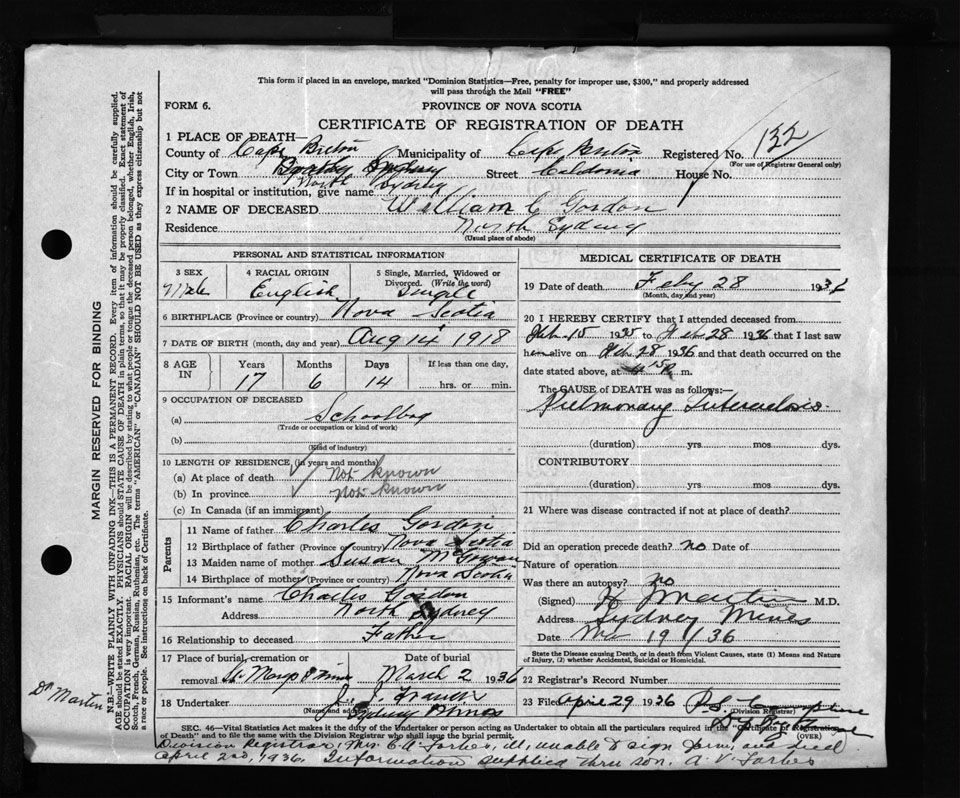 This form if placed in an envelope, marked "Dominion Statistics—Free, penalty for improper use, $300," and properly addressed
will pass through the Mail "FREE"
FORM 6.
PROVINCE OF NOVA SCOTIA
CERTIFICATE OF REGISTRATION OF DEATH
1 PLACE OF DEATH—
County of Cape Breton Municipality of Cape Breton Registered No. 132
(For use of Registrar General only)
City or Town North Sydney Street Caledonia House No.
If in hospital or institution, give name
2 NAME OF DECEASED William C Gordon
Residence North Sydney
(Usual place of abode)
PERSONAL AND STATISTICAL INFORMATION
3 SEX Male
4 RACIAL ORIGIN English
5 Single, Married, Widowed or Divorced. (Write the word) Single
6 BIRTHPLACE (Province or country) Nova Scotia
7 DATE OF BIRTH (month, day and year) Aug 14 1918
8 AGE IN Years Months Days If less than one day,
17 6 14 hrs. or min.
9 OCCUPATION OF DECEASED
(a) Schoolboy
(Trade or occupation or kind of work)
(b)
(Kind of industry)
10 LENGTH OF RESIDENCE (in years and months)
(a) At place of death Not known
(b) In province Not known
(c) In Canada (if an immigrant)
Parents
11 Name of father Charles Gordon
12 Birthplace of father (Province or country) Nova Scotia
13 Maiden name of mother Susan McGowan
14 Birthplace of mother (Province or country) Nova Scotia
15 Informant's name Charles Gordon
Address North Sydney
16 Relationship to deceased Father
17 Place of burial, cremation or removal St Marys S Mines Date of burial March 2 1936
18 Undertaker
(Name and address) Sydney Mines
MEDICAL CERTIFICATE OF DEATH
19 Date of death Feby 28 1936
(Month, day and year)
20 I HEREBY CERTIFY that I attended deceased from
Feb. 15 1935 to Feb 28 1936 that I last saw
him alive on Feb 28 1936 and that death occurred on the
date stated above, at m.
The CAUSE OF DEATH was as follows:—
Pulmonary Tuberculosis
(duration) yrs mos dys.
CONTRIBUTORY
(duration) yrs. mos dys.
21 Where was disease contracted if not at place of death?
Did an operation precede death? no Date of
Nature of operation
Was there an autopsy? no
(Signed) H Martin M.D.
Address Sydney Mines
Date 19 36
State the Disease causing Death, or in death from Violent Causes, state (1) Means and Nature of Injury, (2) whether Accidental, Suicidal or Homicidal.
22 Records Record Number
23 Filed April 29 1936
(Division Registrar)
(OVER)
SEC. 46—Vital Statistics Act make it the duty of and place responsibility on anyone acting as Undertaker to obtain all the particulars required in the "Certificate of Registration of Death" and to file the same with the Division Registrar who shall issue the burial permit.
Division Registrar, Mrs. C.A. Forbes, ill, unable to sign form, and died
April 2nd, 1936. Information supplied thru son. A. V. Forbes
MARGIN RESERVED FOR BINDING
N.B.—WRITE PLAINLY WITH UNFADING INK—THIS IS A PERMANENT RECORD. Every item of information should be carefully supplied.
AGE should be stated EXACTLY. PHYSICIANS should STATE CAUSE OF DEATH in plain terms, so that it may be properly classified. Exact statement of
OCCUPATION is very important. RACIAL ORIGIN will be described by stating to what people or tongue the deceased person belonged, whether English, Irish,
Scotch, French, German, Russian, Ruthenian, etc. The terms "AMERICAN" or "CANADIAN" SHOULD NOT BE USED as they express citizenship but not
a race or people. See instructions on back of Certificate.
Dr Martin